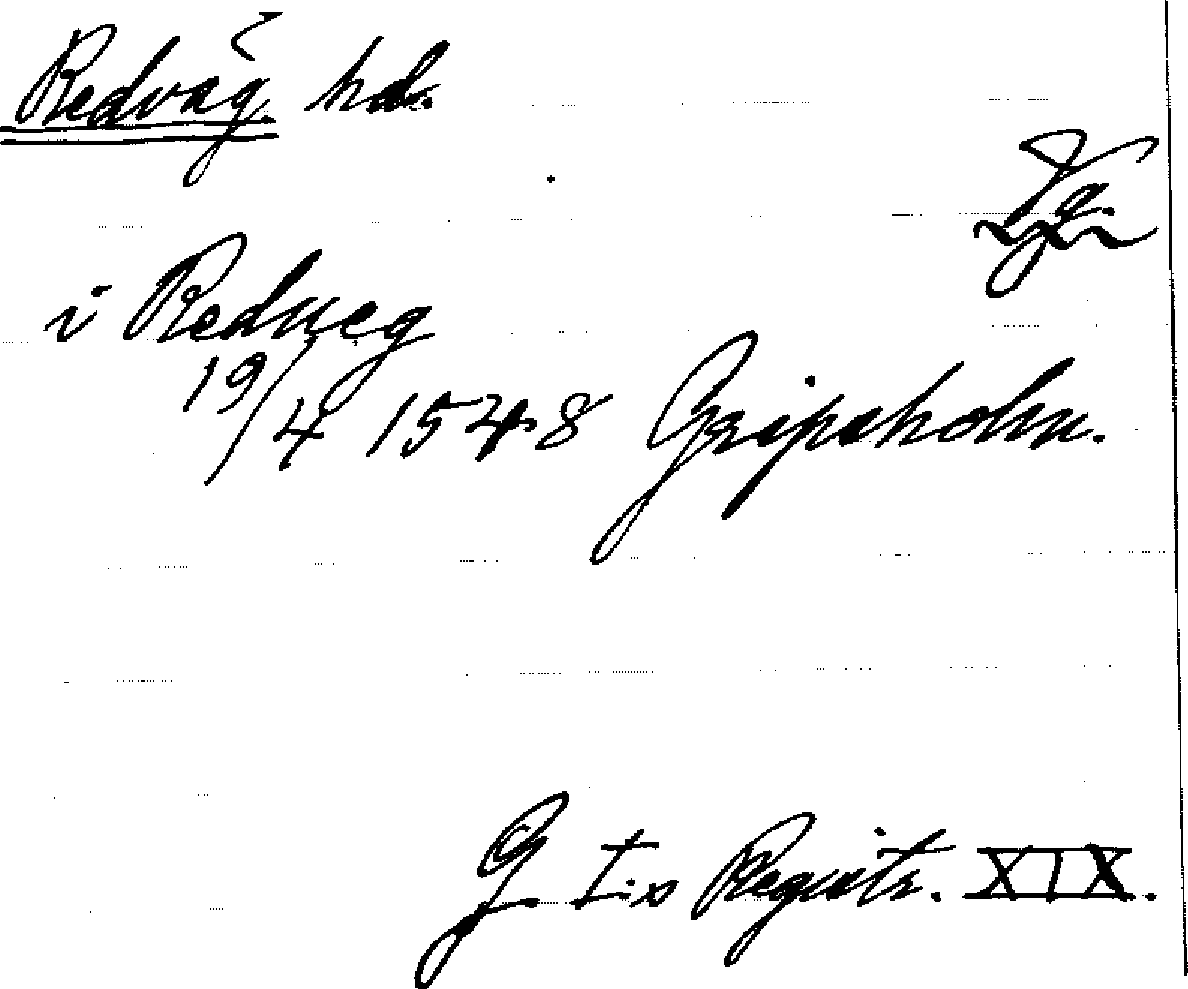 Redväg. hd.
Vg.
i Redweg
19/4 1548 Gripsholm.
G I:s Registr. XIX.